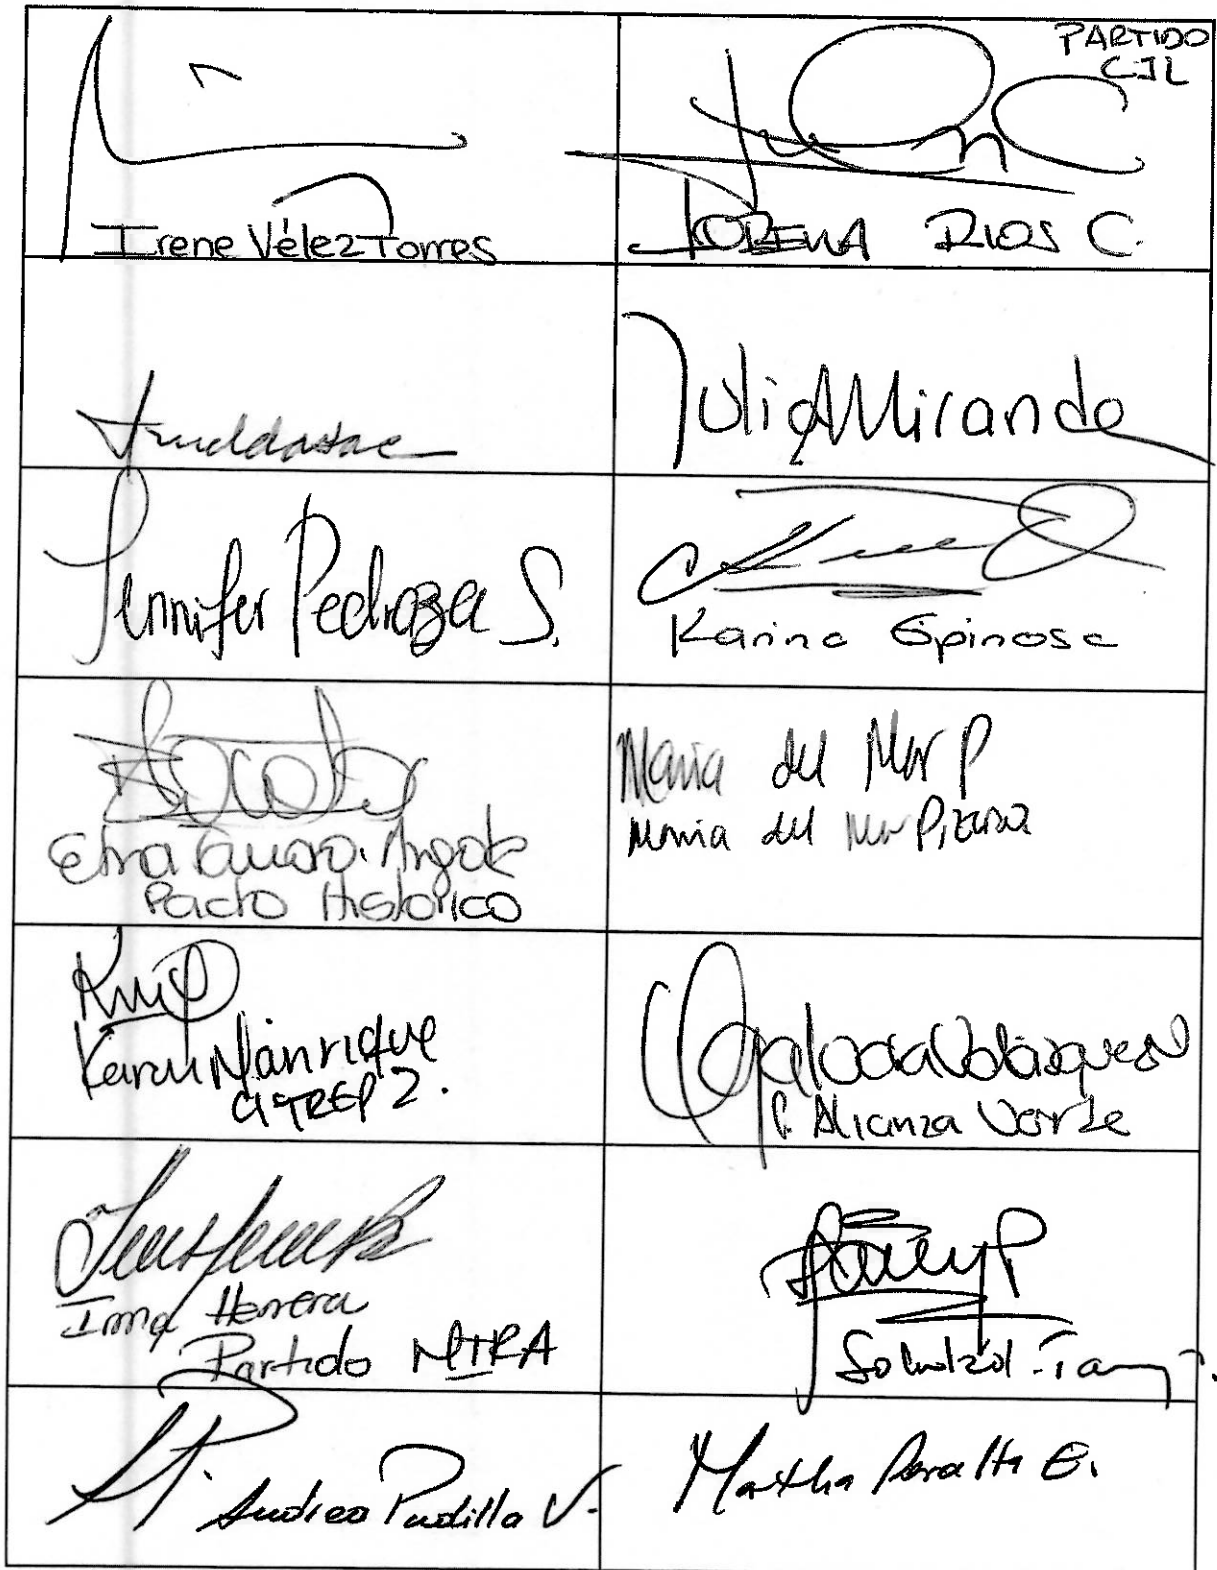 Irene Vélez Torres
PARTIDO
CJL
LORENA RIOS C.
Julia Miranda
Jennifer Pedraza S.
Karina Espinosa
Etna Tamara Argote
Pacto Historico
Maria del Mar P
Maria del Mar Pizarro
Karen Manrique
CITREP 2.
Olga Lucia Velásquez N
P. Alianza Verde
Irma Herrera
Partido MIRA
Andrea Padilla V.
Martha Peralta E.